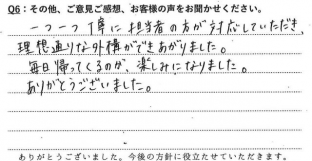 Q6：その他、ご意見ご感想、お客様の声をお聞かせください。
一つ一つ丁寧に担当者の方が対応していただき、
理想通りな外構ができあがりました。
毎日帰ってくるのが、楽しみになりました。
ありがとうございました。
ありがとうございました。今後の方針に役立たせていただきます。